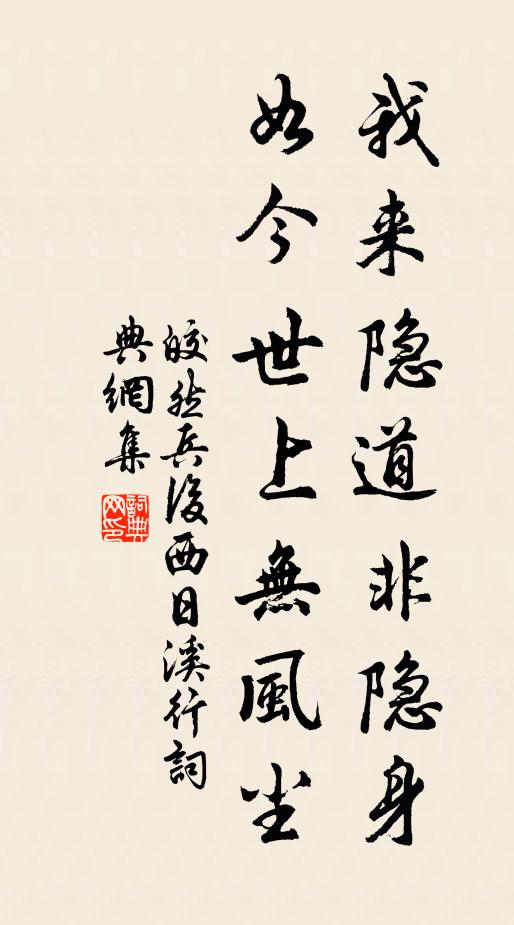 我来隐道非隐身
如今世上無風尘
皎然兵後西日溪行詞
典網集
詞典網印